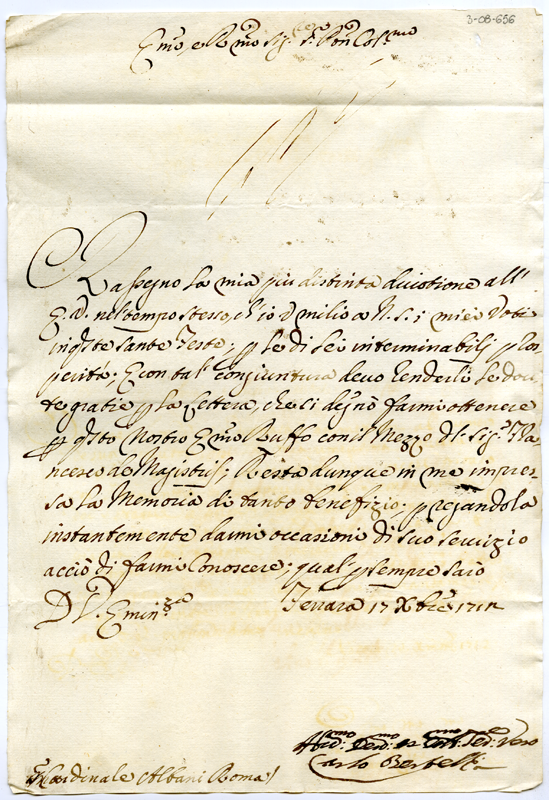 3-08-656
Emo, e Rmo Sigre Pron Colmo
Rassegno la mia piu distinta divotione all'
E.V. nel tempo stesso, ch'io umilio a N.S.; miei Voti
in qste sante Feste; p le di lei interminabilj pros
perità; E con tal' conjiuntura devo renderli le dovu
te gratie p la lettera, che si dejnò farmi ottenere
p qsto Nostro Emo Ruffo con il Mezzo dl Sigr Fran
cesco de Magistris; Resta dunque in me impres
sa la Memoria di tanto benefizio; pregandola
instantemente darmi occasioni di suo servizio
acciò di farmi Conoscere; qual p sempre sarò
D V. Eminza Ferrara 17 Xbre
Carlo
Cardinale Albani Roma